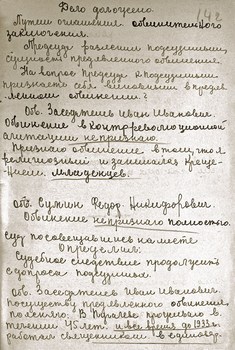 142
Дело доложено.
Путем оглашения обвинительного
заключения.
Предсуд разъяснил подсудимым
сущность предъявленного обвинения.
На вопрос предсуда к подсудимым
признает себя виновными в предъяв
ленном обвинении?
Об. Заседателев Иван Иванович.
Обвинение в контрреволюционной
агитации не признаю.
Признаю обвинение в том, что я
религиозный и занимался креще-
нием младенцев.
Об. Сутин Федор Никифорович.
Обвинение не признаю полностью.
Суд посовещавшись на месте
Определил:
Судебное следствие продолжить
с допроса подсудимых.
Об. Заседателев Иван Иванович
по существу предъявленного обвинения,
поясняю: В проживаю в
течении 45 лет. и все время до 1933 г.
работал священником в